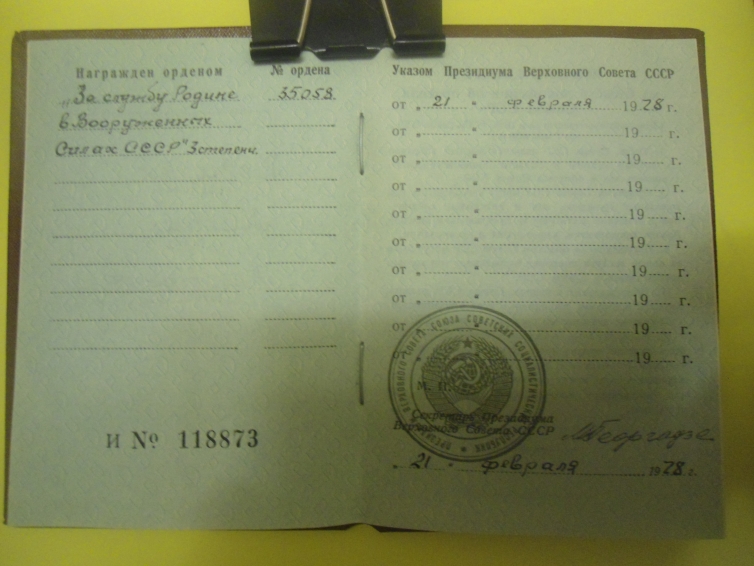 Награжден орденом
№ ордена
„За службу Родине
35058
в Вооруженных
Силах СССР" 3 степени.
И № 118873
Указом Президиума Верховного Совета СССР
от „ 21 " февраля 1978 г.
от „ " 19 г.
от „ " 19 г.
от „ " 19 г.
от „ " 19 г.
от „ " 19 г.
от „ " 19 г.
от „ " 19 г.
от „ " 19 г.
от „ " 19 г.
М. П.
Секретарь Президиума
Верховного Совета СССР
МГеоргадзе
„ 21 " февраля 1978 г.